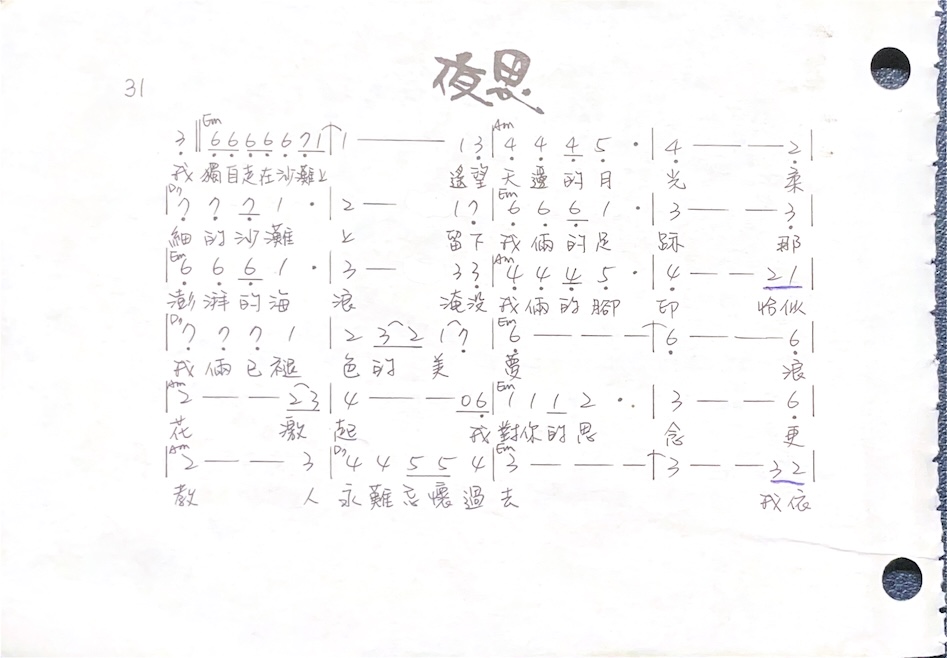 夜思
31
Em Am
3 ‖ 6 6 6 6 6 7 1 | 1 — 1 3 | 4 4 4 5 · | 4 — — 2 |
我獨自走在沙灘上 遙望天邊的月光 柔
D7 Em
| 7 7 7 1 · | 2 — 1 7 | 6 6 6 1 · | 3 — — 3 |
細的沙灘上 留下我倆的足跡 那
Em Am
| 6 6 6 1 · | 3 — 3 3 | 4 4 4 5 · | 4 — — 2 1 |
澎湃的海浪 淹没我倆的腳印 恰似
D7 Em
| 7 7 7 1 | 2 3 2 1 7 | 6 — — — | 6 — — 6 |
我倆已褪色的美夢 浪
Am Em
| 2 — — 2 3 | 4 — — 0 6 | 1 1 1 2 · · | 3 — — 6 |
花激起 我對你的思念 更
Am D7 Em
| 2 — — 3 | 4 4 5 5 4 | 3 — — — | 3 — — 3 2 |
教人永難忘懷過去 我依